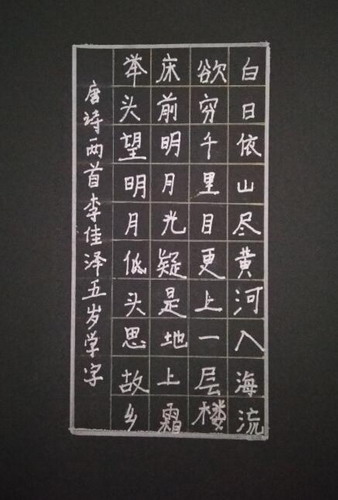 白日依山尽黄河入海流
欲穷千里目更上一层楼
床前明月光疑是地上霜
举头望明月低头思故乡
唐诗两首李佳泽五岁学字